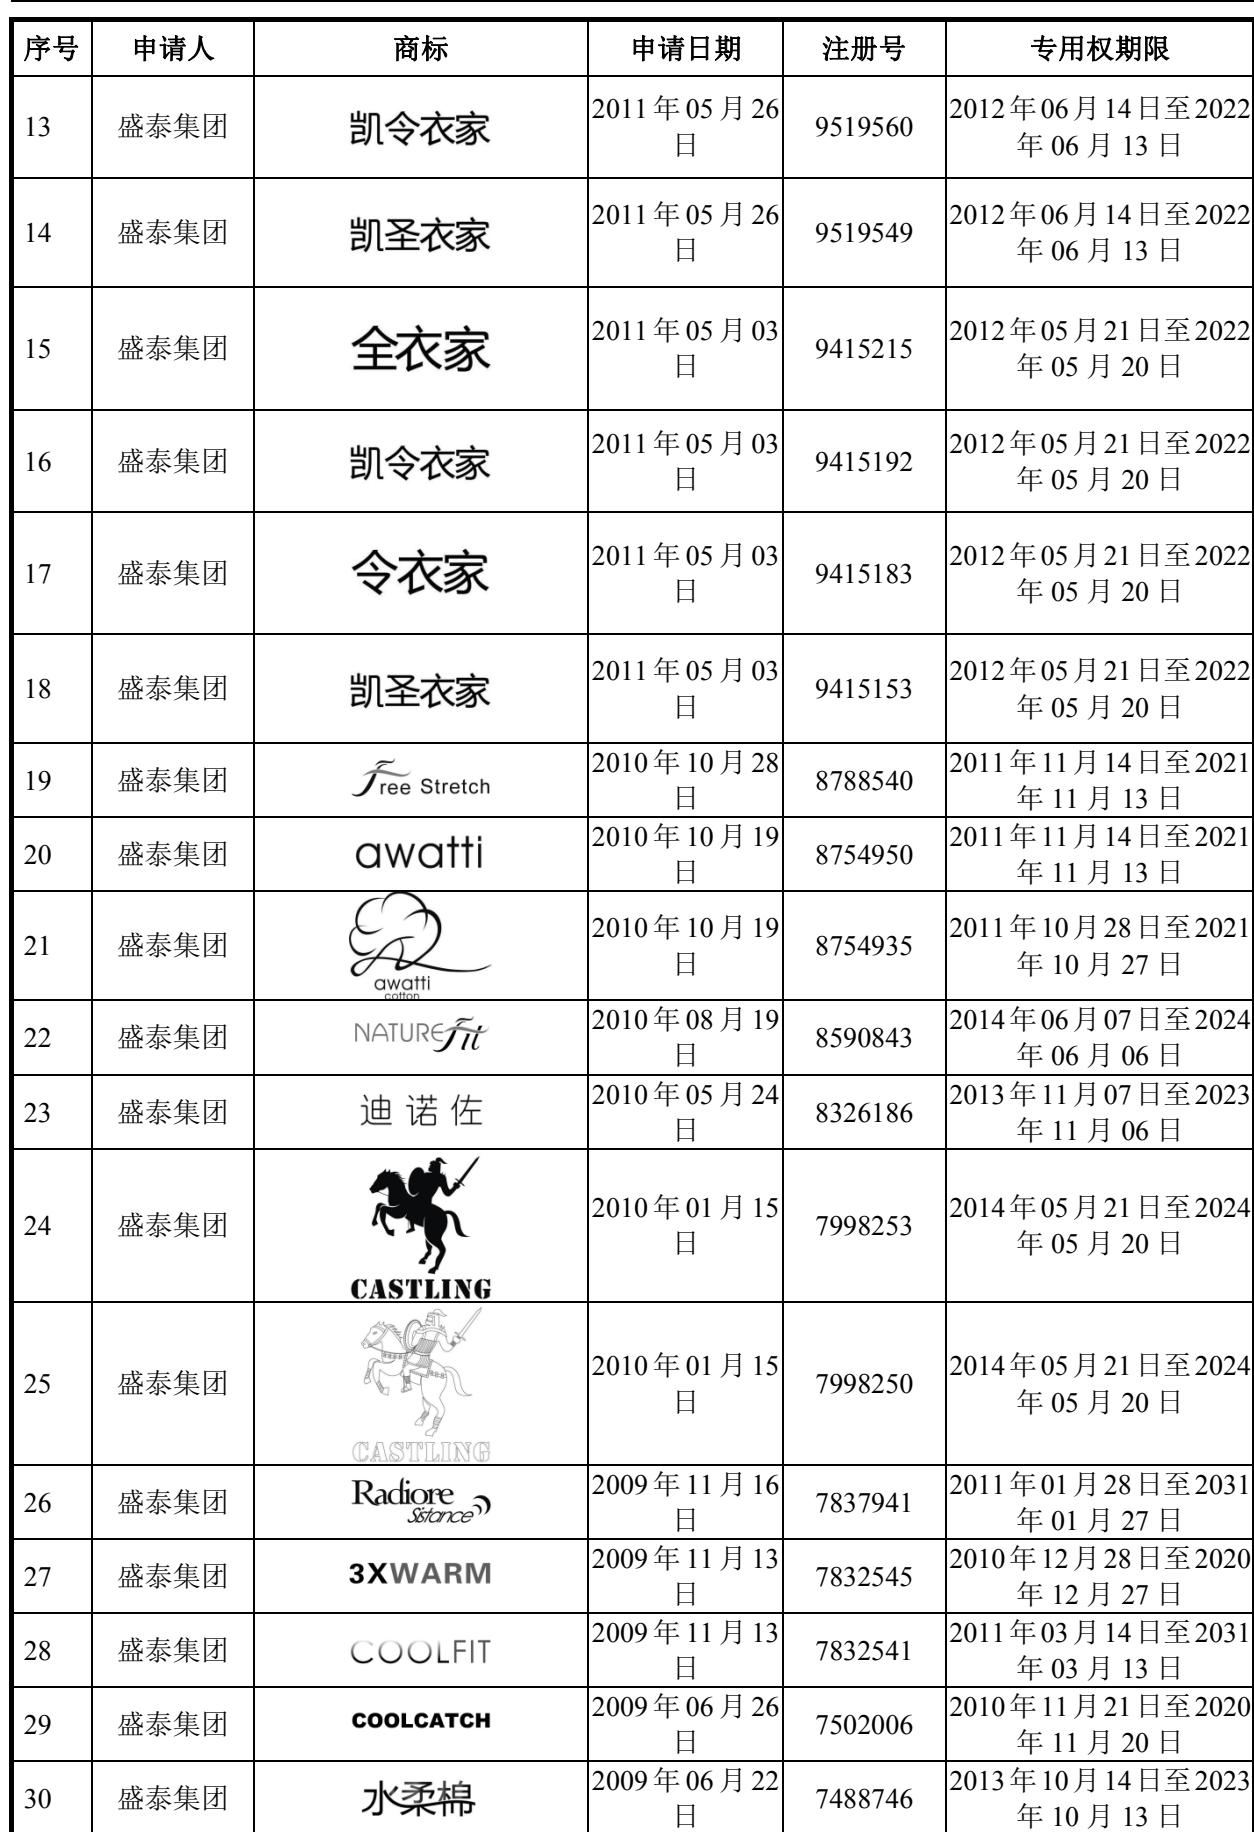 序号 申请人 商标 申请日期 注册号 专用权期限
13 盛泰集团 凯令衣家 2011年05月26日 9519560 2012年06月14日至2022年06月13日
14 盛泰集团 凯圣衣家 2011年05月26日 9519549 2012年06月14日至2022年06月13日
15 盛泰集团 全衣家 2011年05月03日 9415215 2012年05月21日至2022年05月20日
16 盛泰集团 凯令衣家 2011年05月03日 9415192 2012年05月21日至2022年05月20日
17 盛泰集团 令衣家 2011年05月03日 9415183 2012年05月21日至2022年05月20日
18 盛泰集团 凯圣衣家 2011年05月03日 9415153 2012年05月21日至2022年05月20日
19 盛泰集团 Free Stretch 2010年10月28日 8788540 2011年11月14日至2021年11月13日
20 盛泰集团 awatti 2010年10月19日 8754950 2011年11月14日至2021年11月13日
21 盛泰集团 awatti cotton 2010年10月19日 8754935 2011年10月28日至2021年10月27日
22 盛泰集团 NATURE Fit 2010年08月19日 8590843 2014年06月07日至2024年06月06日
23 盛泰集团 迪诺佐 2010年05月24日 8326186 2013年11月07日至2023年11月06日
24 盛泰集团 CASTLING 2010年01月15日 7998253 2014年05月21日至2024年05月20日
25 盛泰集团 CASTLING 2010年01月15日 7998250 2014年05月21日至2024年05月20日
26 盛泰集团 Radiore Sistance 2009年11月16日 7837941 2011年01月28日至2031年01月27日
27 盛泰集团 3XWARM 2009年11月13日 7832545 2010年12月28日至2020年12月27日
28 盛泰集团 COOLFIT 2009年11月13日 7832541 2011年03月14日至2031年03月13日
29 盛泰集团 COOLCATCH 2009年06月26日 7502006 2010年11月21日至2020年11月20日
30 盛泰集团 水柔棉 2009年06月22日 7488746 2013年10月14日至2023年10月13日